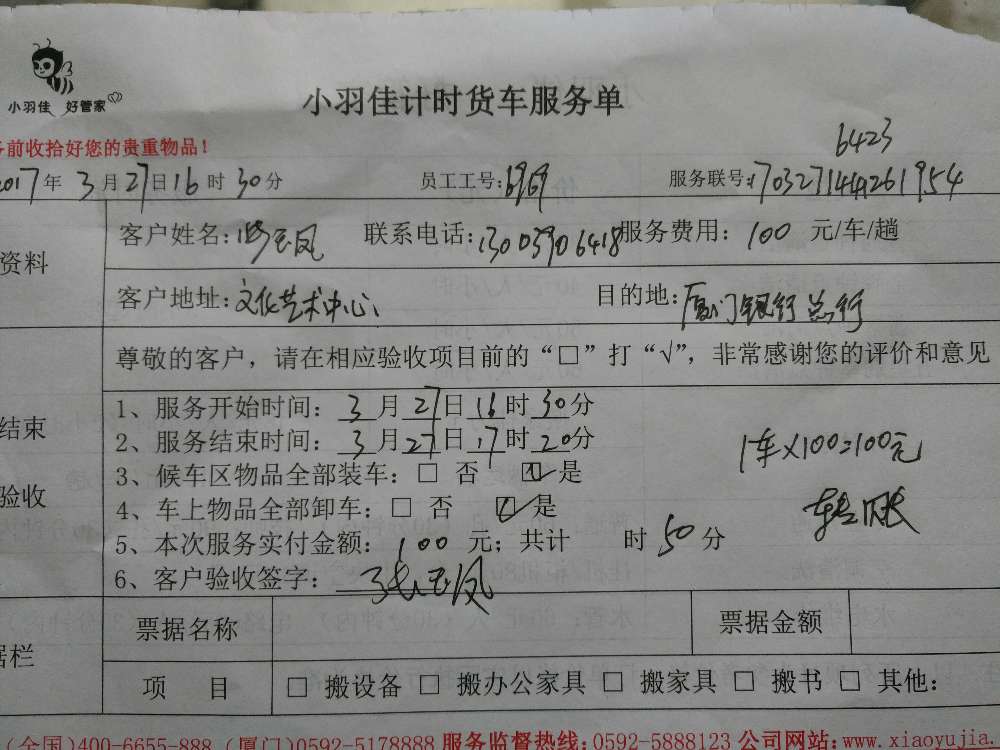 小羽佳 好管家
小羽佳计时货车服务单
前收拾好您的贵重物品！
6423
2017年3月27日16时30分 员工工号：6969 服务联号：170327144261954
资料
客户姓名： 玉凤 联系电话：13003906418 服务费用：100 元/车/趟
客户地址：文化艺术中心 目的地：厦门银行总行
尊敬的客户，请在相应验收项目前的“□”打“√”，非常感谢您的评价和意见
结束
验收
1、服务开始时间：3月27日16时30分
2、服务结束时间：3月27日17时20分
1车×100=100元
3、候车区物品全部装车：□ 否 ☑是
4、车上物品全部卸车：□ 否 ☑是
5、本次服务实付金额：100 元；共计 时50分
6、客户验收签字： 玉凤
据栏
票据名称 票据金额
项 目 □ 搬设备 □ 搬办公家具 □ 搬家具 □ 搬书 □ 其他：
(全国)400-6655-888 (厦门)0592-5178888 服务监督热线：0592-5888123 公司网站：www.xiaoyujia.